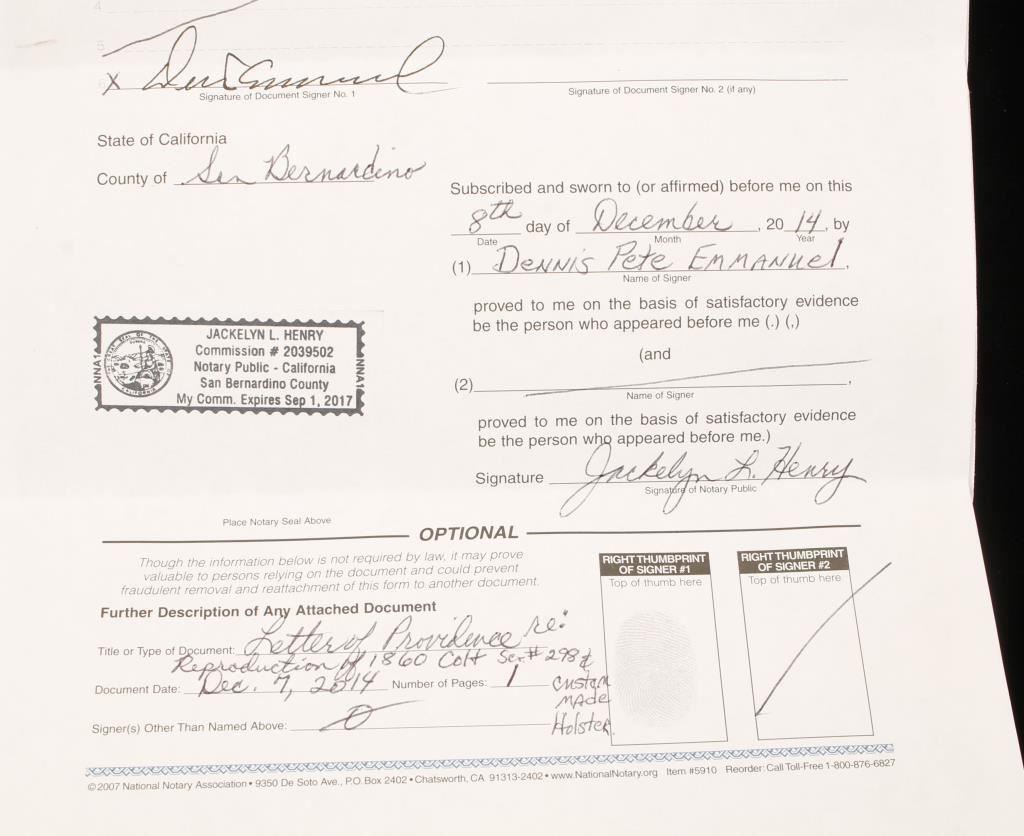 4
5
6
X
Signature of Document Signer No. 1
Signature of Document Signer No. 2 (if any)
State of California
County of San Bernardino
Subscribed and sworn to (or affirmed) before me on this
8th day of December, 2014, by
Date Month Year
(1) Dennis Pete Emmanuel,
Name of Signer
proved to me on the basis of satisfactory evidence
be the person who appeared before me (.) (,)
(and
(2) ,
Name of Signer
proved to me on the basis of satisfactory evidence
be the person who appeared before me.)
Signature Jackelyn L. Henry
Signature of Notary Public
NNA1
JACKELYN L. HENRY
Commission # 2039502
Notary Public - California
San Bernardino County
My Comm. Expires Sep 1, 2017
NNA1
Place Notary Seal Above
OPTIONAL
Though the information below is not required by law, it may prove
valuable to persons relying on the document and could prevent
fraudulent removal and reattachment of this form to another document.
Further Description of Any Attached Document
Title or Type of Document: Letter of Providence re:
Reproduction of 1860 Colt Ser.# 298 &
Document Date: Dec. 7, 2014 Number of Pages: 1
Custom
Made
Holster.
Signer(s) Other Than Named Above:
RIGHT THUMBPRINT
OF SIGNER #1
Top of thumb here
RIGHT THUMBPRINT
OF SIGNER #2
Top of thumb here
© 2007 National Notary Association • 9350 De Soto Ave., P.O. Box 2402 • Chatsworth, CA 91313-2402 • www.NationalNotary.org Item #5910 Reorder: Call Toll-Free 1-800-876-6827